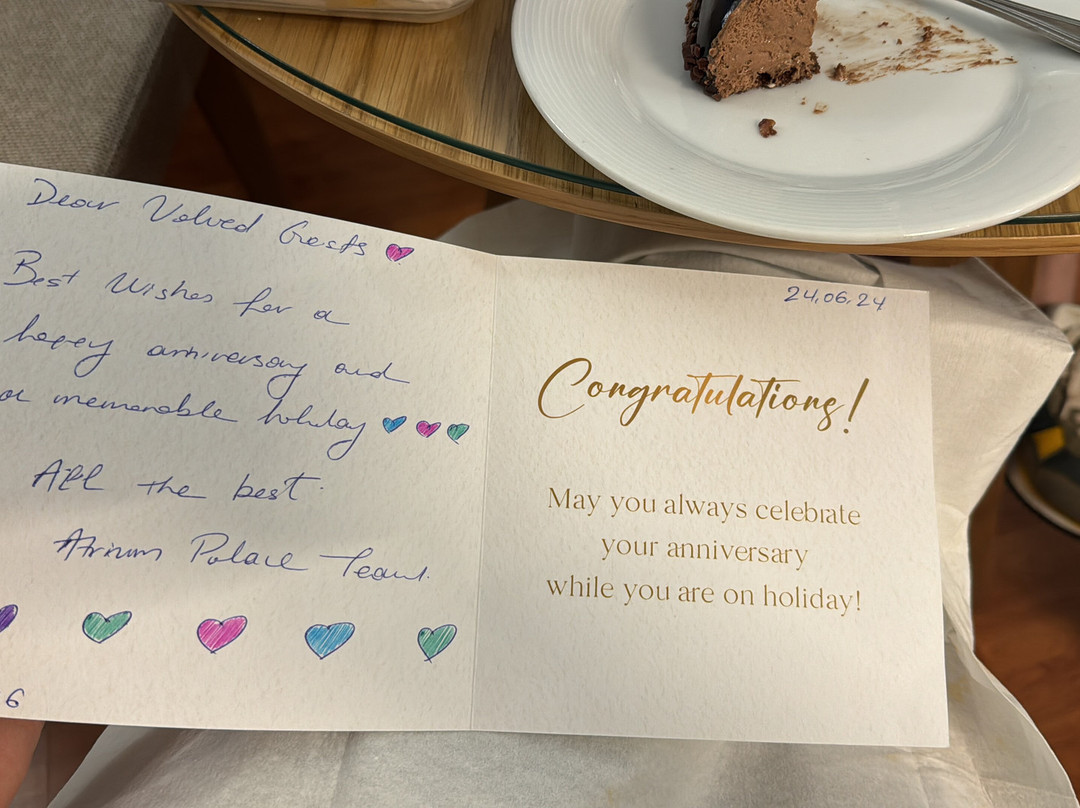 Dear Valued Guests
Best Wishes for a
happy anniversary and
a memorable holiday
All the best.
Atrium Palace Team.
6
24.06.24
Congratulations!
May you always celebrate
your anniversary
while you are on holiday!